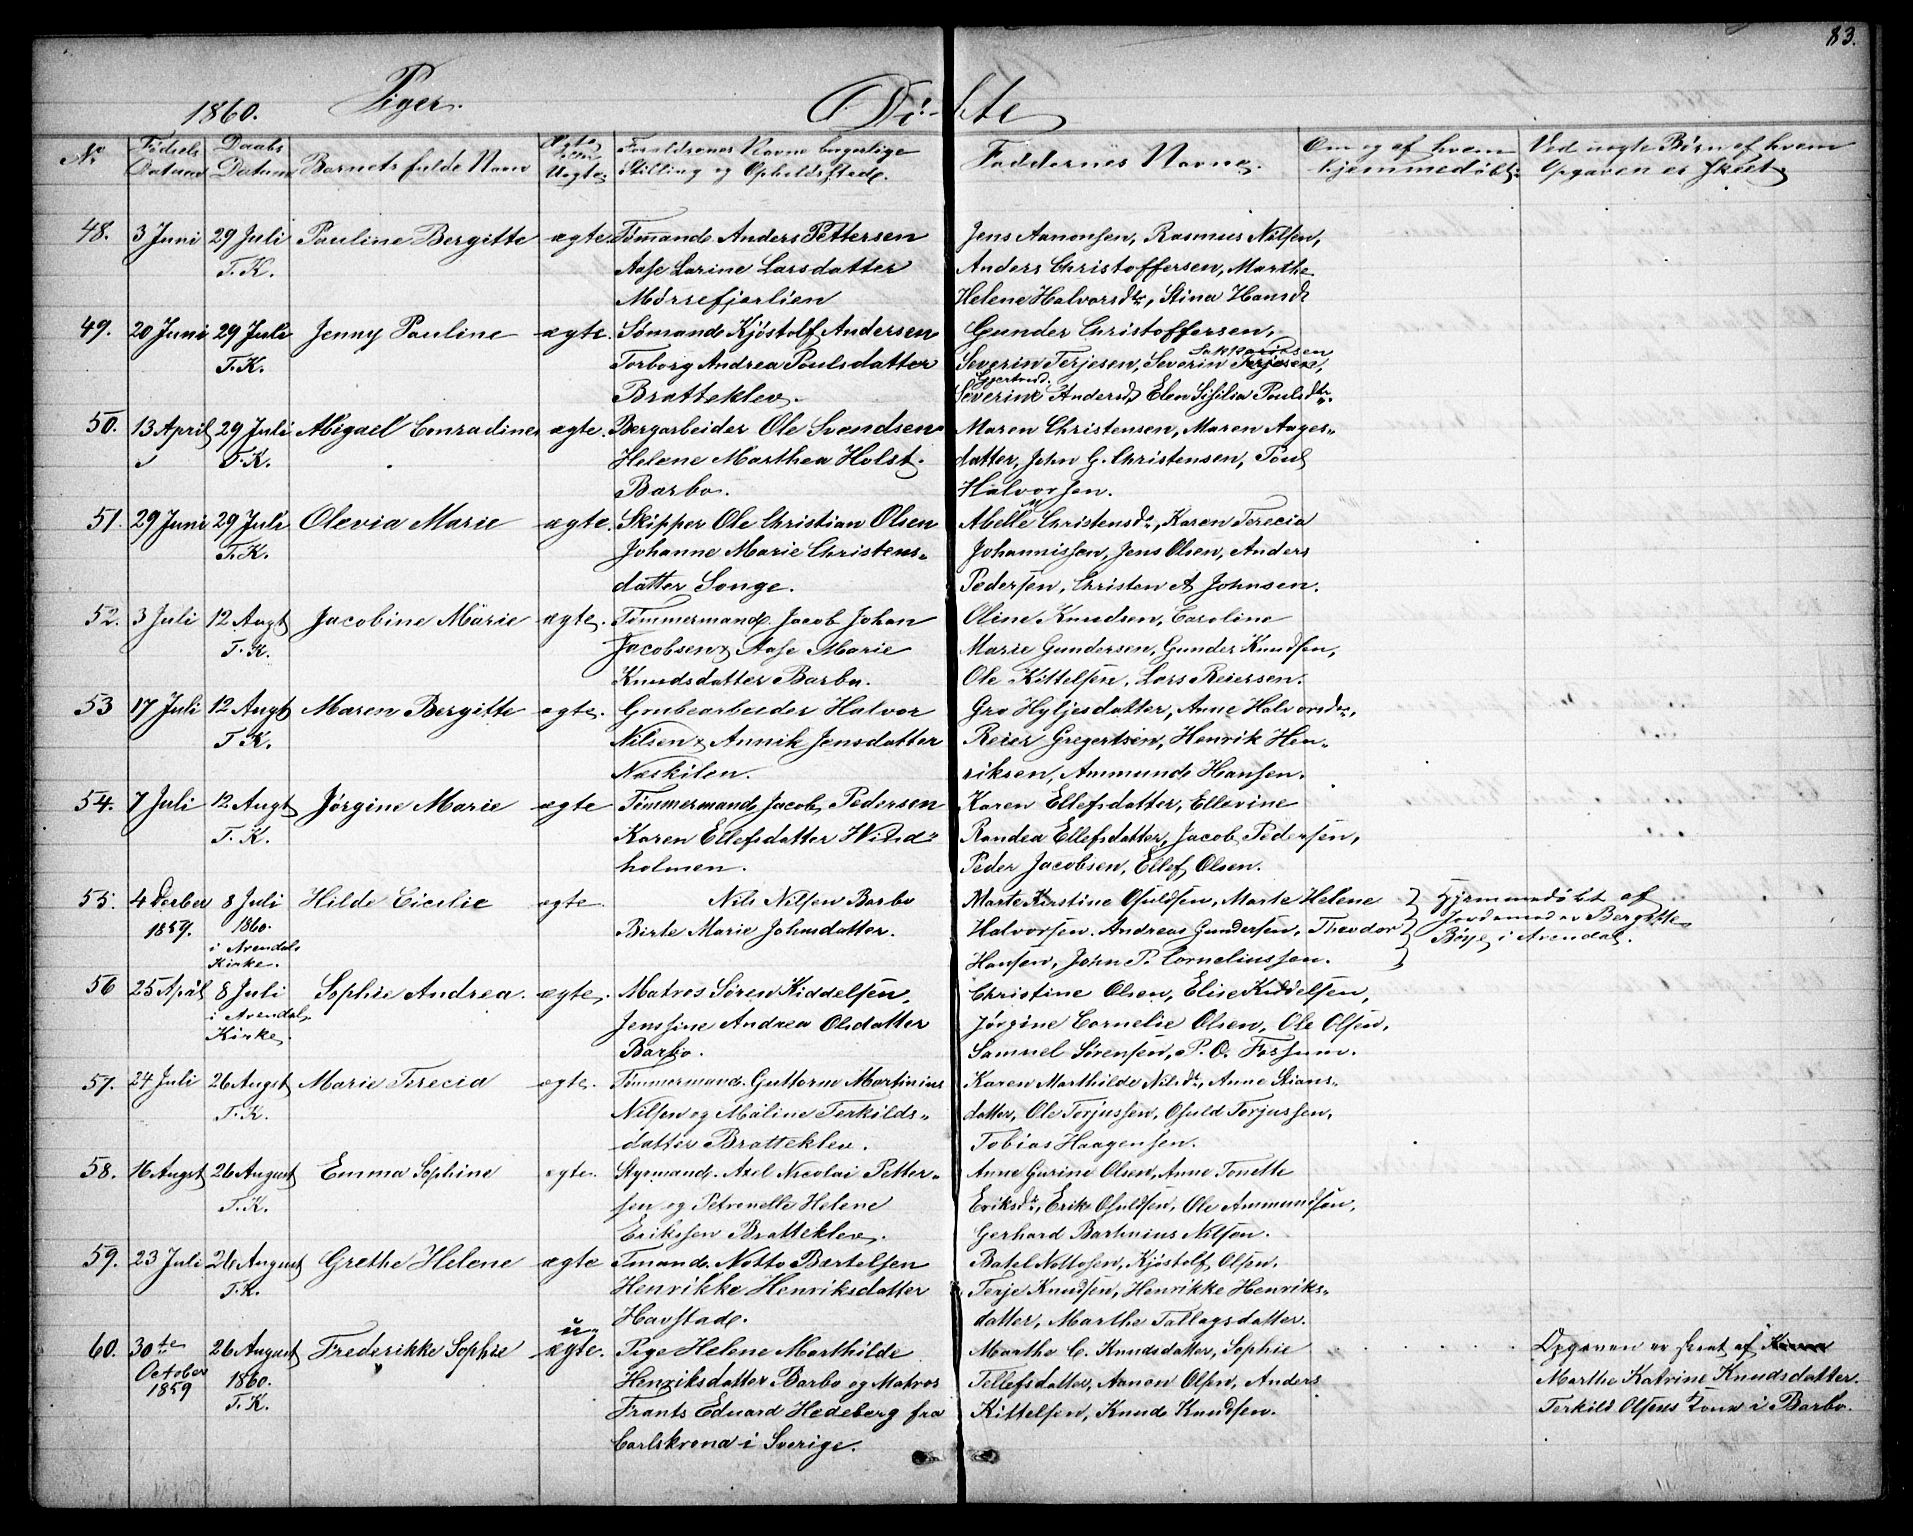 83.
1860. Piger. Døbte
No Fødsels Datum Daabs Datum Barnets fulde Navn Ægte eller Uægte Forældrenes Navne borgerlige Stilling og Opholdssted. Faddernes Navne. Om og af hvem hjemmedøbt. Ved uægte Børn af hvem Opgaven er skeet
48. 3 Juni 29 Juli Pauline Bergitte ægte Sømand Anders Pettersen Jens Aanonsen, Rasmus Nilsen,
T.K. Aase Larine Larsdatter Anders Christoffersen, Marthe
Mørsefjerlien Helene Halvorsdtr, Stina Hansdt
49. 20 Juni 29 Juli Jenny Pauline ægte. Sømand Kjøstolf Andersen Gunder Christoffersen,
T.K. Torborg Andrea Poulsdatter Severin Terjesen, Severin Terjesen,
Bratteklev. Severine Andersd, Elen Sisilia Poulsdtr.
50. 13 April 29 Juli Abigael Conradine ægte. Bergarbeider Ole Svendsen Maren Christensen, Maren Aagers-
T.K. Helene Marthea Holst. datter, John G. Christensen, Poul
Barbo. Halvorsen.
51. 29 Juni 29 Juli Olevia Marie ægte. Skipper Ole Christian Olsen Abelle M Christensdr, Karen Terecia
T.K. Johanne Marie Christens- Johannissen, Jens Olsen, Anders
datter Songe. Pedersen, Christen A Johnsen.
52. 3 Juli 12 Augt Jacobine Marie ægte. Tømmermand Jacob Johan Oline Knudsen, Caroline
T.K. Jacobsen & Aase Marie Marie Gundersen, Gunder Knudsen,
Knudsdatter Barbo. Ole Kittelsen, Lars Reiersen.
53 17 Juli 12 Augt Maren Bergitte ægte. Grubearbeider Halvor Gro Hyljesdatter, Anne Halvorsdtr,
T.K. Nilsen & Annik Jensdatter Reier Gregertsen, Henrik Hen-
Næskilen. riksen, Ammund Hansen.
54. 7 Juli 12 Augt Jørgine Marie ægte Tømmermand Jacob Pedersen Karen Ellefsdatter, Ellevine
T.K. Karen Ellefsdatter Hvids- Randea Ellefsdatter, Jacob Pedersen,
holmen. Peder Jacobsen, Ellef Olsen.
55. 4 Decber 8 Juli Hilde Cicilie ægte. Nils Nilsen Barbo Marte Kirstine Osuldsen, Marte Helene Hjemmedøbt af
1859. 1860. Birte Marie Johnsdatter. Halvorsen. Andreas Gundersen, Theodor Jordemoder Bergitte
i Arendals Kirke. Hansen, John P. Corneliussen. Böye i Arendal.
56 25 April 8 Juli Sophie Andrea. ægte. Matros Sören Kiddelsen, Christine Olsen, Elise Kiddelsen,
i Arendals Jenssine Andrea Olsdatter Jörgine Cornelie Olsen, Ole Olsen,
Kirke. Barbo. Samuel Sørensen, P. O. Fossum.
57. 24 Juli 26 Augst Marie Terecia ægte. Tømmermand Guttorm Martinius Karen Marthilde Nilsdt, Anne Stians-
T.K. Nilsen og Maline Terkilds- datter, Ole Torjussen, Osuld Torjussen,
datter Bratteklev. Tobias Haagensen.
58. 16 Augst 26 August Emma Sophine ægte. Styrmand Axel Nicolai Petter- Anne Gurine Olsen, Anne Tonette
T.K. sen og Petronelle Helene Eriksdt, Erik Osuldsen, Ole Ammundsen,
Erikssen Bratteklev. Gerhard Barhnius Nilsen.
59. 23 Juli 26 August Grethe Helene ægte Tmand Notto Bertelsen Batel Nottosen, Kjöstolf Olsen,
T.K. Henrikke Henriksdatter Terje Knudsen, Henrikke Henriks-
Havstad. datter, Marthe Tallagsdatter.
60. 30te 26 August Frederikke Sophie u-ægte. Pige Helene Marthilde Marthe C. Knudsdatter, Sophie Opgaven er skeet af
October 1859 1860. Henriksdatter Barbo og Matros Tellefsdatter, Aanon Olsen, Anders Marthe Katrine Knudsdatter
T.K. Frants Eduard Hedeberg fra Kittelsen, Knud Knudsen. Terkild Olsens Kone i Barbo.
Carlskrona i Sverige.